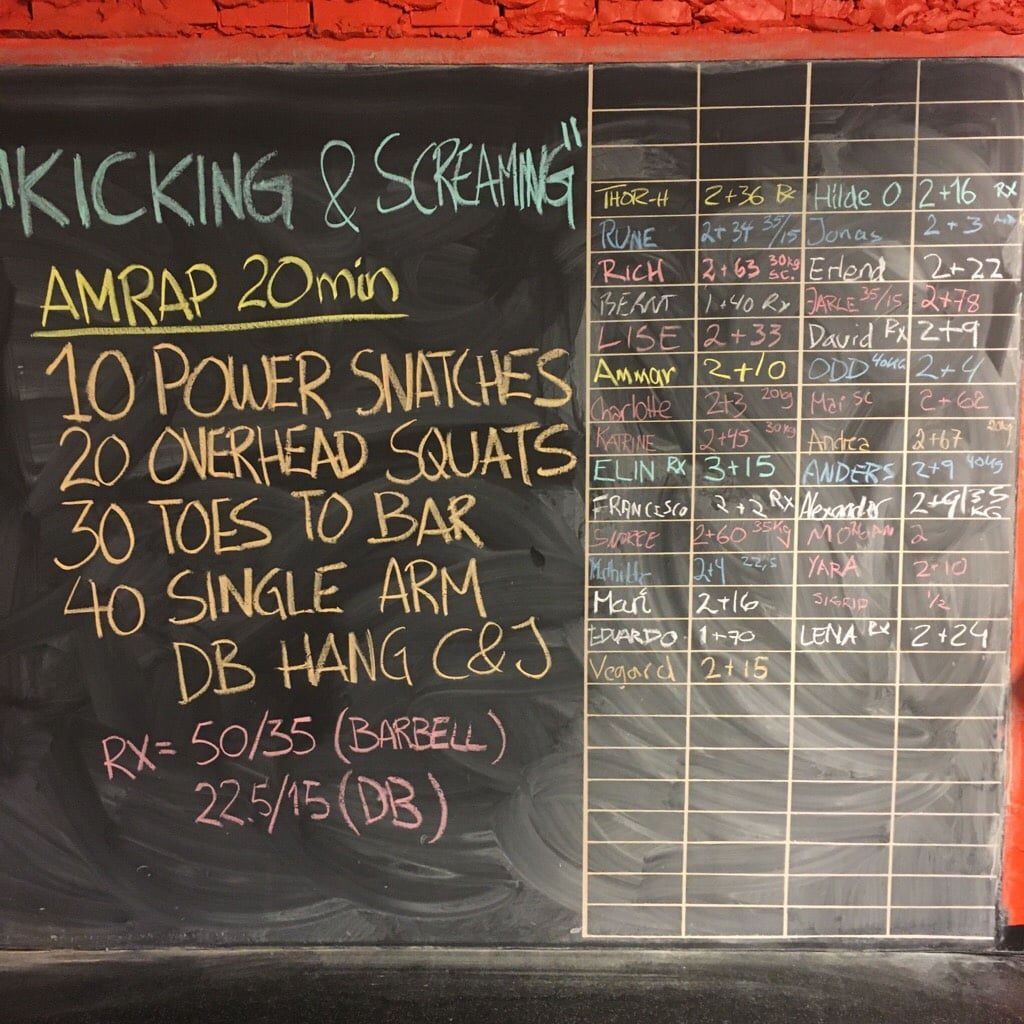 "KICKING & SCREAMING"
AMRAP 20min
10 POWER SNATCHES
20 OVERHEAD SQUATS
30 TOES TO BAR
40 SINGLE ARM
DB HANG C&J
RX= 50/35 (BARBELL)
22.5/15 (DB)
THOR-H 2+36 Rx Hilde O 2+16 RX
RUNE 2+34 35/15 Jonas 2+3
RICH 2+63 30kg sc. Erlend 2+22
BERNT 1+40 Rx JARLE 35/15 2+78
LISE 2+33 David Rx 2+9
Ammar 2+10 ODD 40KG 2+4
Charlotte 2+3 20kg Mai SC 2+62
KATRINE 2+45 30kg Andrea 2+67
ELIN RX 3+15 ANDERS 2+9 40kg
FRANCESCO 2+2 Rx Alexander 2+9 35 KG
SNORRE 2+60 35kg MORGAN 2
2+4 22,5 YARA 2+10
Mari 2+16 SIGRID 1/2
EDUARDO 1+70 LENA RX 2+24
Vegard 2+15